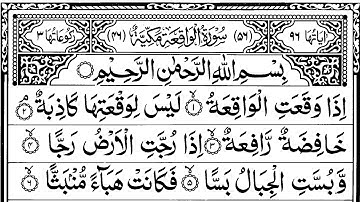 اٰیَاتُهَا ٩٦ (٥٦) سُوْرَةُ الْوَاقِعَةِ مَكِّيَّةٌ (٤٦) رُكُوْعَاتُهَا ٣
بِسْمِ اللّٰهِ الرَّحْمٰنِ الرَّحِيْمِ
اِذَا وَقَعَتِ الْوَاقِعَةُ ۙ﴿١﴾ لَيْسَ لِوَقْعَتِهَا كَاذِبَةٌ ۘ﴿٢﴾
خَافِضَةٌ رَّافِعَةٌ ۙ﴿٣﴾ اِذَا رُجَّتِ الْاَرْضُ رَجًّا ۙ﴿٤﴾
وَّبُسَّتِ الْجِبَالُ بَسًّا ۙ﴿٥﴾ فَكَانَتْ هَبَآءً مُّنْۢبَثًّا ۙ﴿٦﴾